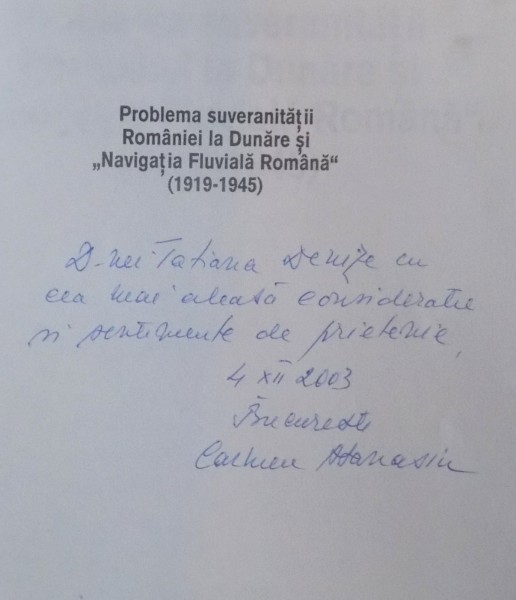 Problema suveranității
României la Dunăre și
„Navigația Fluvială Română“
(1919-1945)
D-nei Tatiana Denize cu
cea mai aleasă considerație
si sentimente de prietenie,
4 XII 2003
București
Carmen Atanasiu